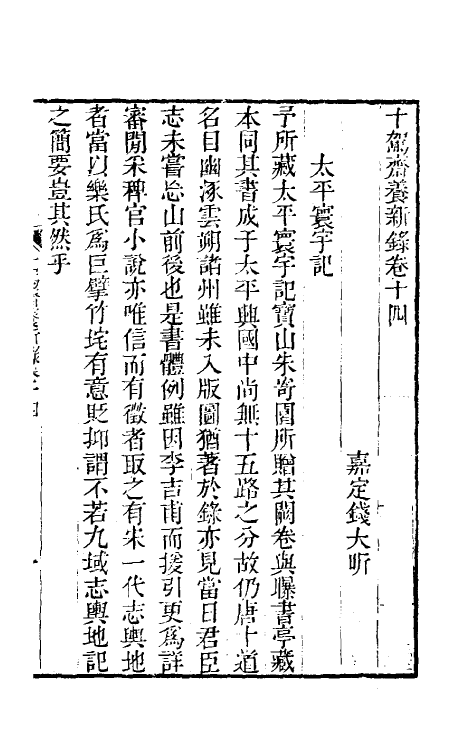 十駕齋養新錄卷十四
嘉定錢大昕
太平寰宇記
予所藏太平寰宇記寶山朱寄園所贈其闕卷與曝書亭藏
本同其書成于太平興國中尚無十五路之分故仍唐十道
名目幽涿雲朔諸州雖未入版圖猶著於錄亦見當日君臣
志未嘗忘山前後也是書體例雖因李吉甫而援引更爲詳
審閒采稗官小說亦唯信而有徵者取之有宋一代志輿地
者當以樂氏爲巨擘竹垞有意貶抑謂不若九域志輿地記
之簡要豈其然乎